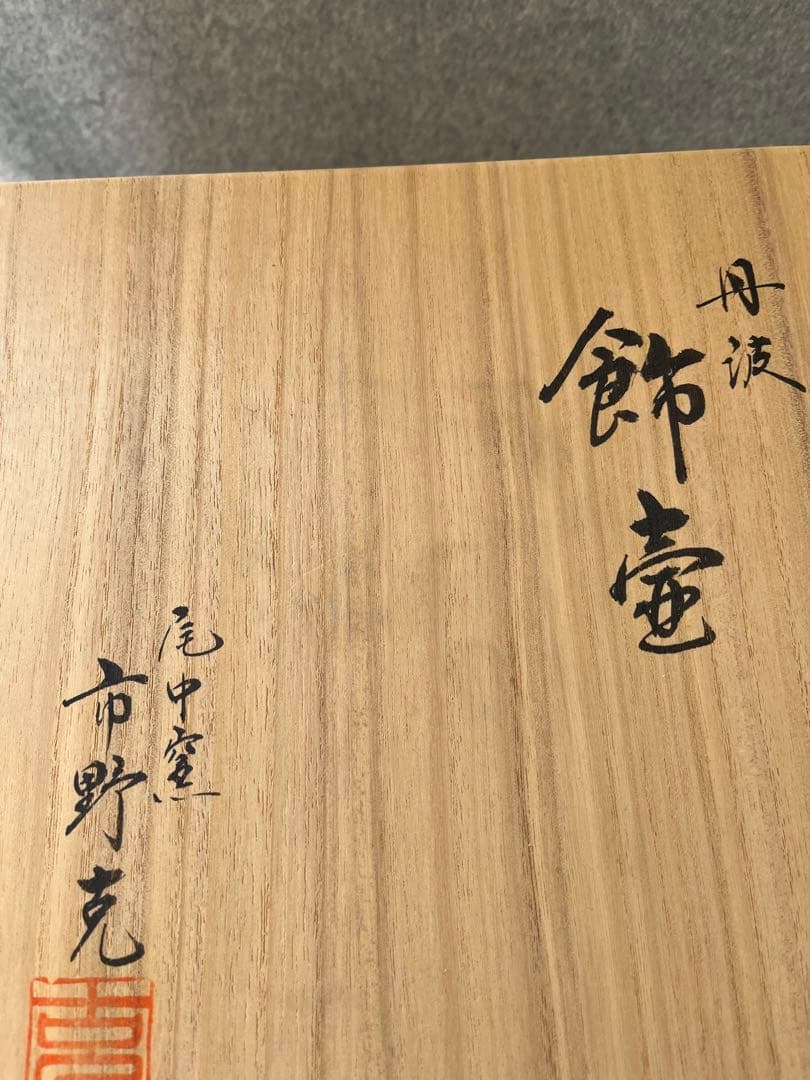 丹波
飾壷
尾中窯
市野克